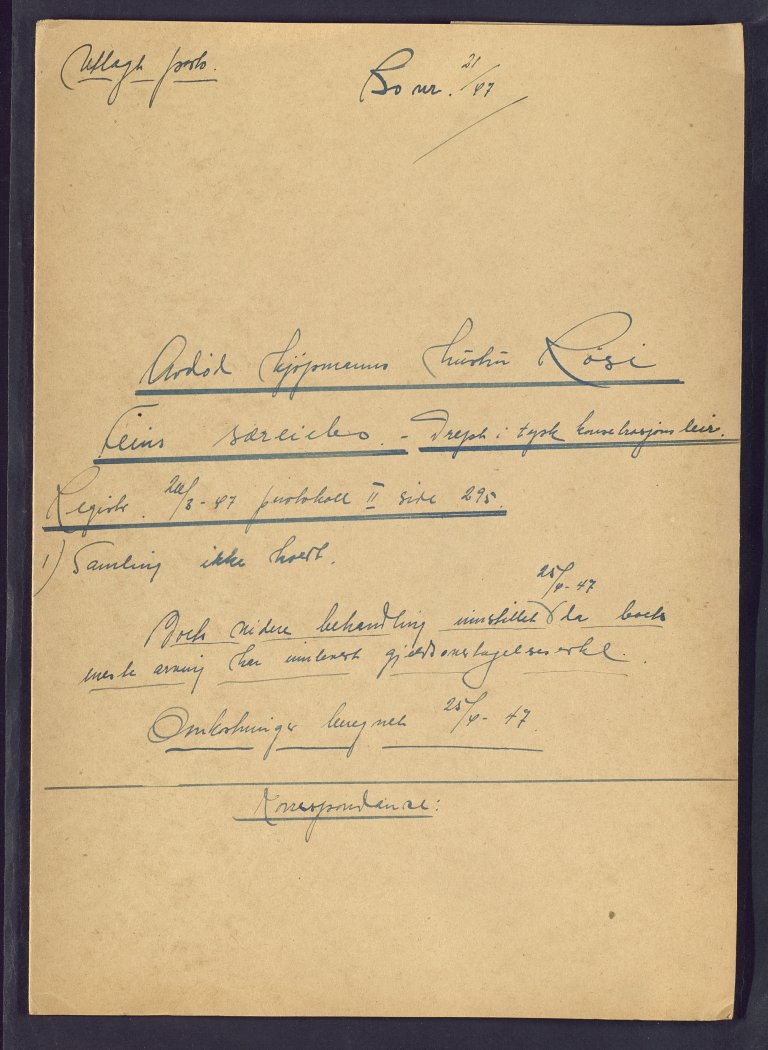 Utlagt porto.
Bo nr. 21/47
Avdød kjøpmanns hustru Rósi
Feins særeiebo. - Drept i tysk konsetrasjons leir.
Registr. 20/3-47 protokoll II side 295.
1) Samling ikke holdt.
25/4-47
Boets videre behandling innstillet da boets
eneste arving har innlevert gjeldsovertagelseserkl.
Omkostninger beregnet 25/4-47.
Korrespondanse: